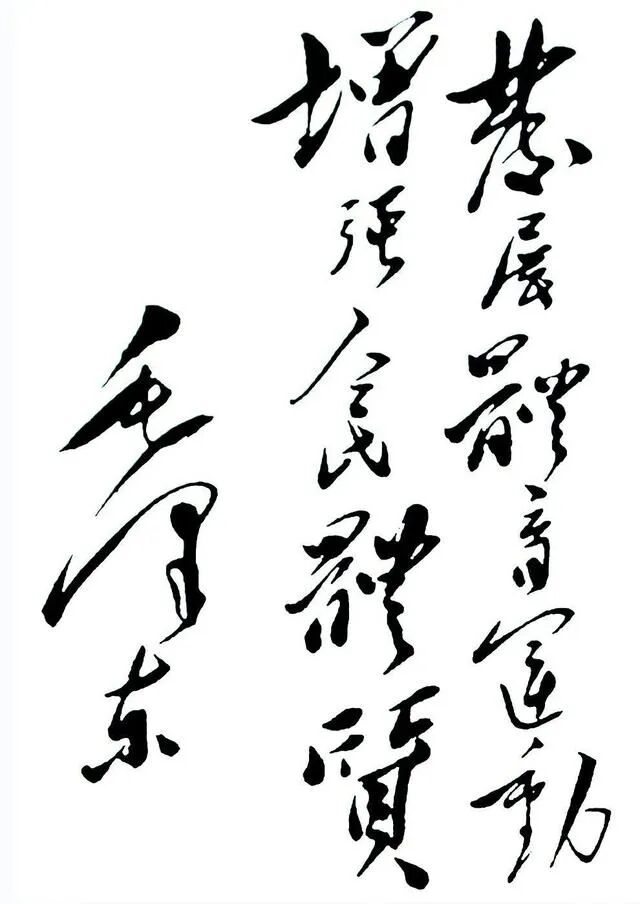 發展體育運動
增強人民體質
毛泽东